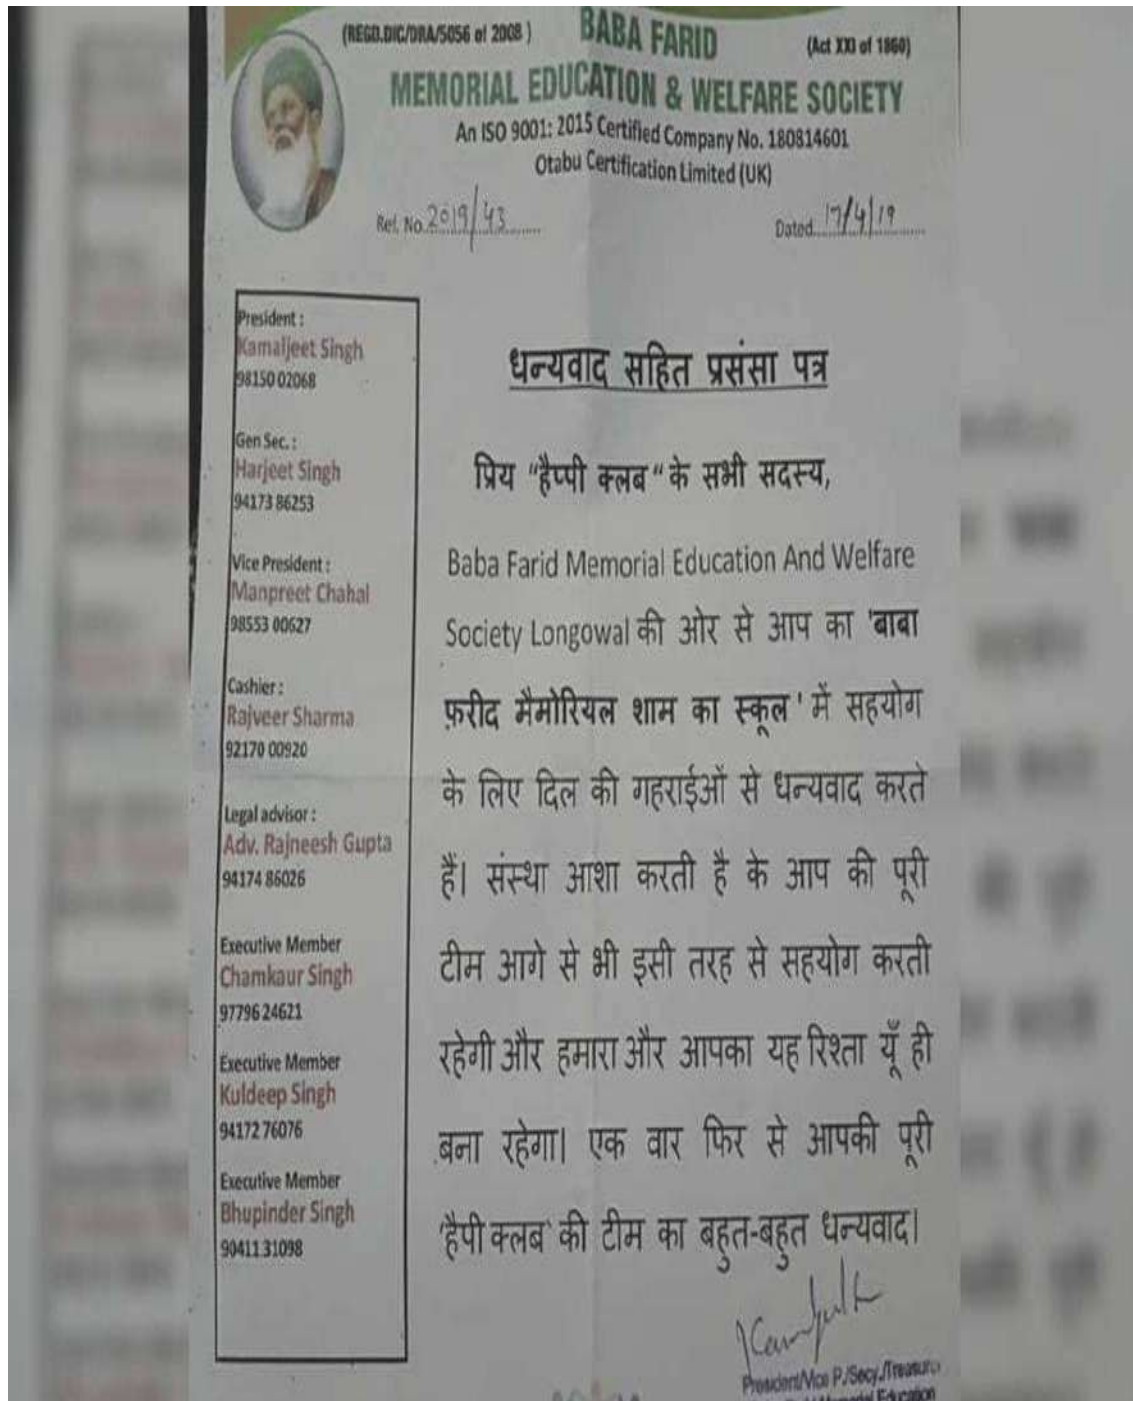 (REGD.DIG/DRA/5056 of 2008 )
BABA FARID
(Act XXI of 1860)
MEMORIAL EDUCATION & WELFARE SOCIETY
An ISO 9001: 2015 Certified Company No. 180814601
Otabu Certification Limited (UK)
Ref. No. 2019/43
Dated 17/4/19
President :
Kamaljeet Singh
98150 02068
Gen Sec. :
Harjeet Singh
94173 86253
Vice President :
Manpreet Chahal
98553 00627
Cashier :
Rajveer Sharma
92170 00920
Legal advisor :
Adv. Rajneesh Gupta
94174 86026
Executive Member
Chamkaur Singh
97796 24621
Executive Member
Kuldeep Singh
94172 76076
Executive Member
Bhupinder Singh
90411 31098
धन्यवाद सहित प्रसंसा पत्र
प्रिय "हैप्पी क्लब" के सभी सदस्य,
Baba Farid Memorial Education And Welfare
Society Longowal की ओर से आप का 'बाबा
फ़रीद मैमोरियल शाम का स्कूल' में सहयोग
के लिए दिल की गहराईओं से धन्यवाद करते
हैं। संस्था आशा करती है के आप की पूरी
टीम आगे से भी इसी तरह से सहयोग करती
रहेगी और हमारा और आपका यह रिश्ता यूँ ही
बना रहेगा। एक वार फिर से आपकी पूरी
'हैपी क्लब' की टीम का बहुत-बहुत धन्यवाद।
President/Vice P./Secy./Treasurer
Memorial Education